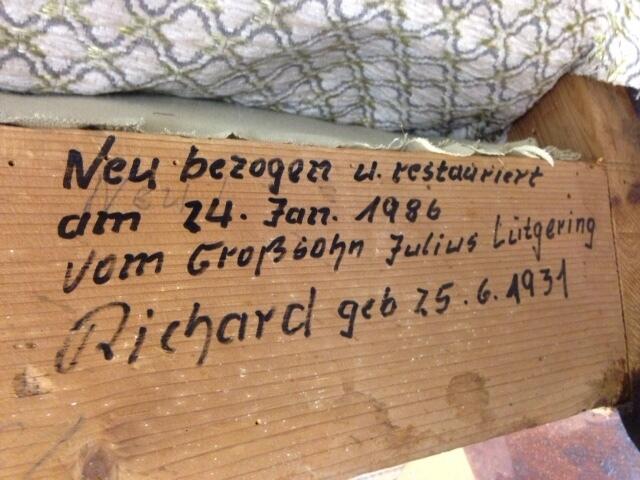 Neu bezogen u. restauriert
am 24. Jan. 1986
vom Großsohn Julius Lütgering
Richard geb 25.6.1931